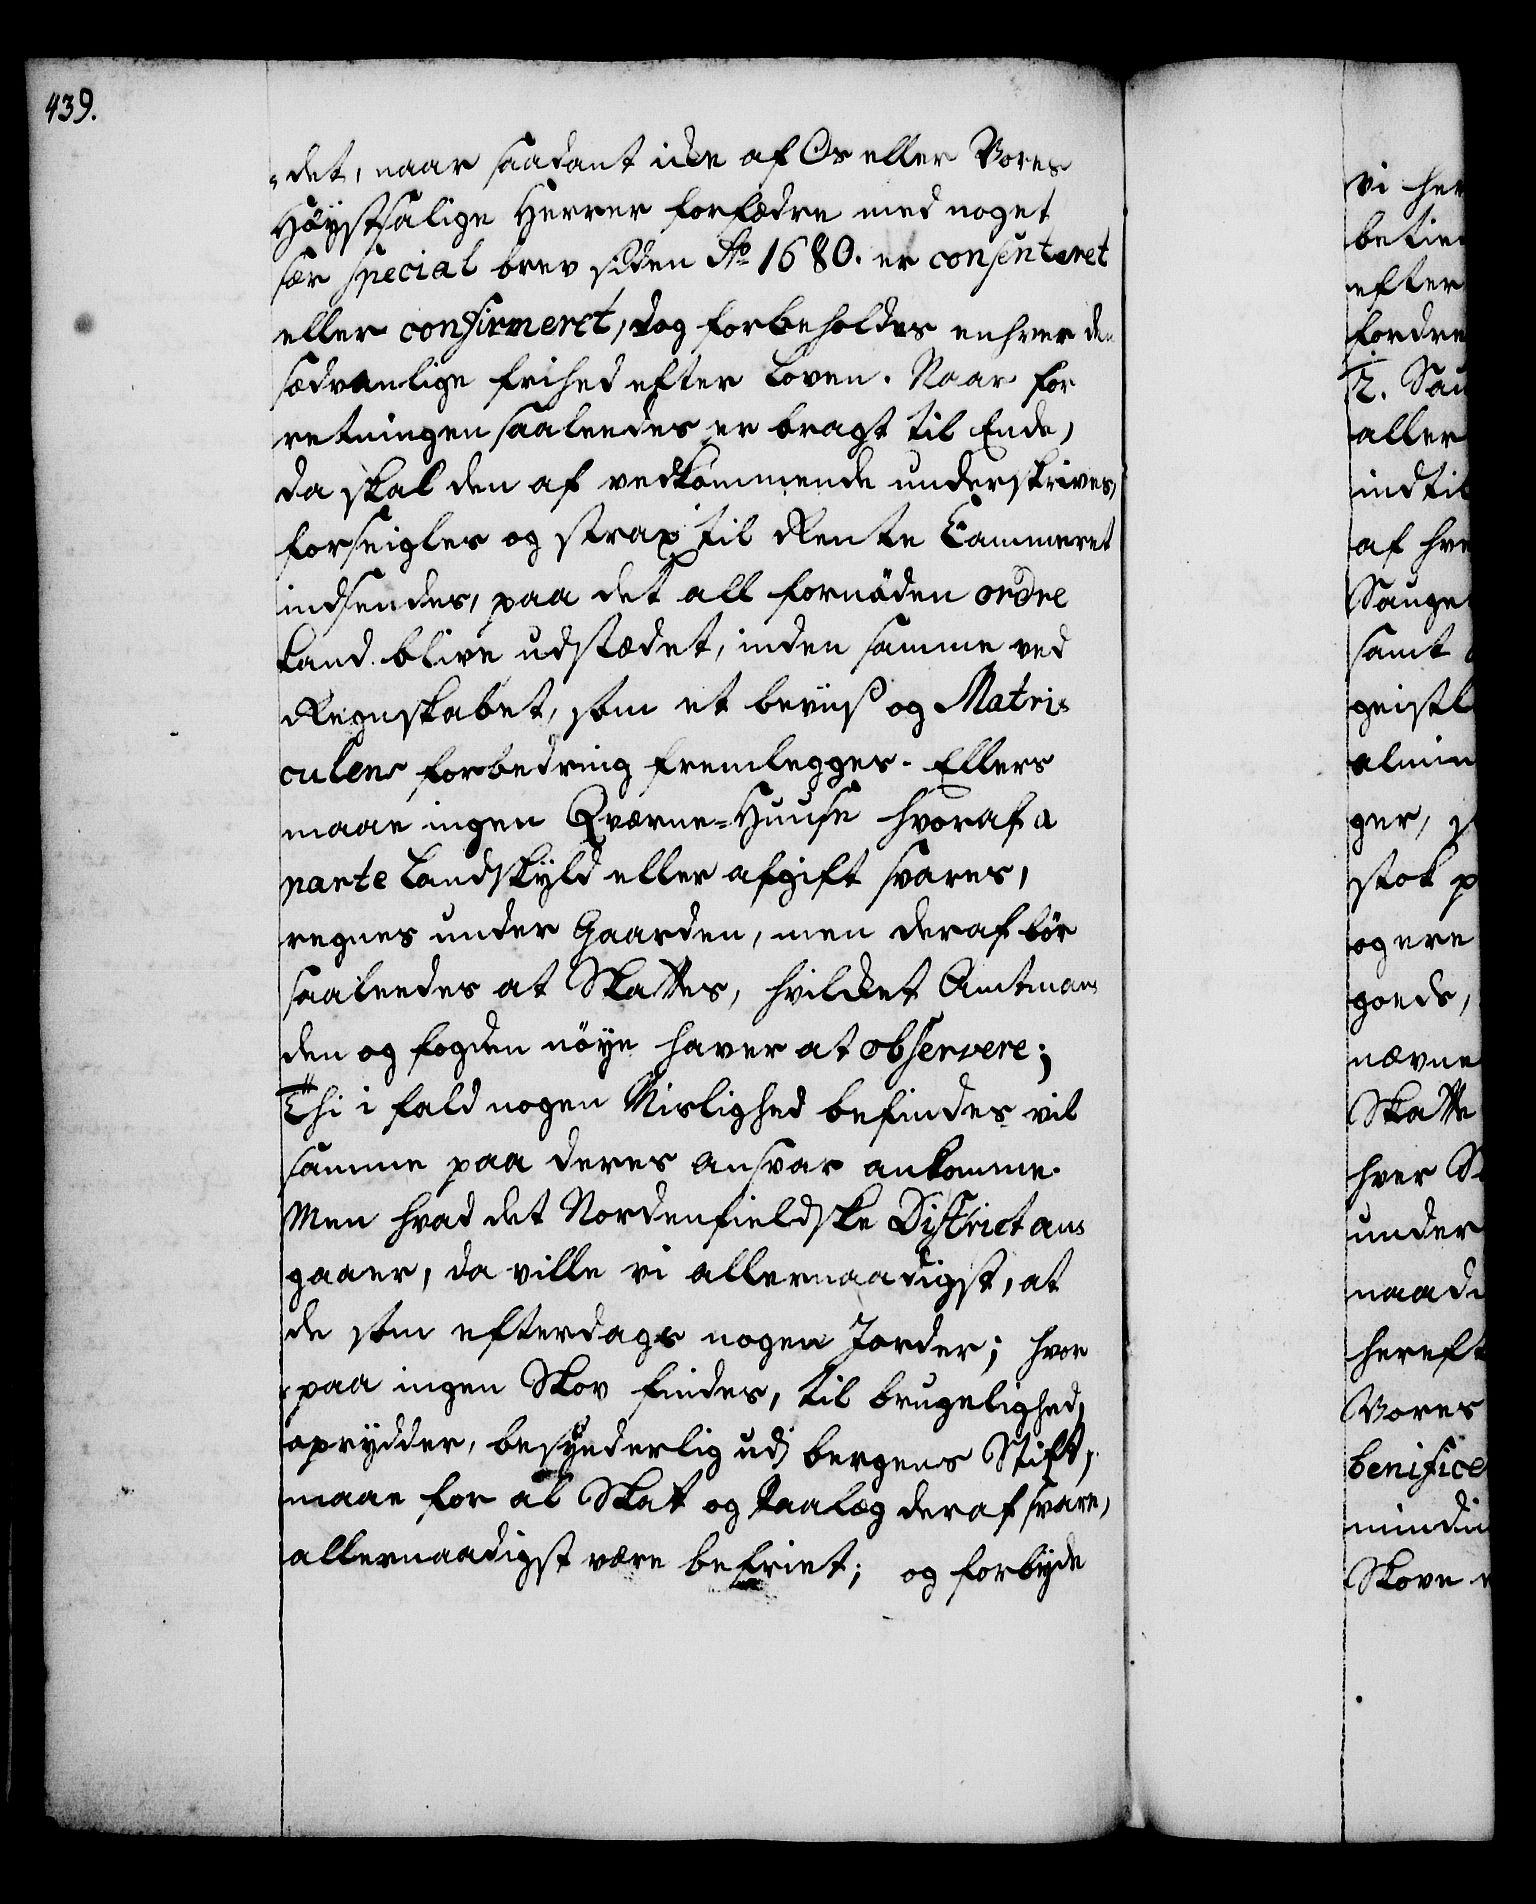 439.
det, naar saadant icke af Os eller Vores
Høystsalige Herrer forfædre med noget
sær special brev siden Ao 1680. er consenteret
eller confirmeret, dog forbeholdes enhver den
sædvanlige frihed efter Loven. Naar for
retningen saaleedes er bragt til Ende,
da skal den af vedkommende underskrives,
forseigles og strax til Rente Cammeret
indsendes, paa det all fornøden ordre
kand blive udstædet, inden samme ved
Regnskabet, som et beviis og Matri-
culens forbedring fremlegges. Ellers
maae ingen Qværne-Huuse hvoraf a
parte Landskyld eller afgift svares,
regnes under Gaarden, men deraf bør
saaleedes at Skattes, hvilcket Amtman-
den og fogden nøye haver at observere;
Thi i fald nogen Mislighed befindes vil
samme paa deres ansvar ankomme.
Men hvad det Nordenfieldske District an-
gaaer, da ville vi allernaadigst, at
de som efterdags nogen Jorder; hvor
paa ingen Skov findes, til brugelighed,
oprydder, besynderlig udj bergens Stift,
maae for al Skat og Paalæg deraf svare,
allernaadigst være befriet; og forbyde
vi her
betien
efter
fordre
2. Sau
aller
indtil
af hve
Sauge
samt
geistl
almin
ger, s
stok p
og ere
goeds,
nævne
Skatte
hver S
under
naadi
hereft
Vores
benifice
mindi
Skove